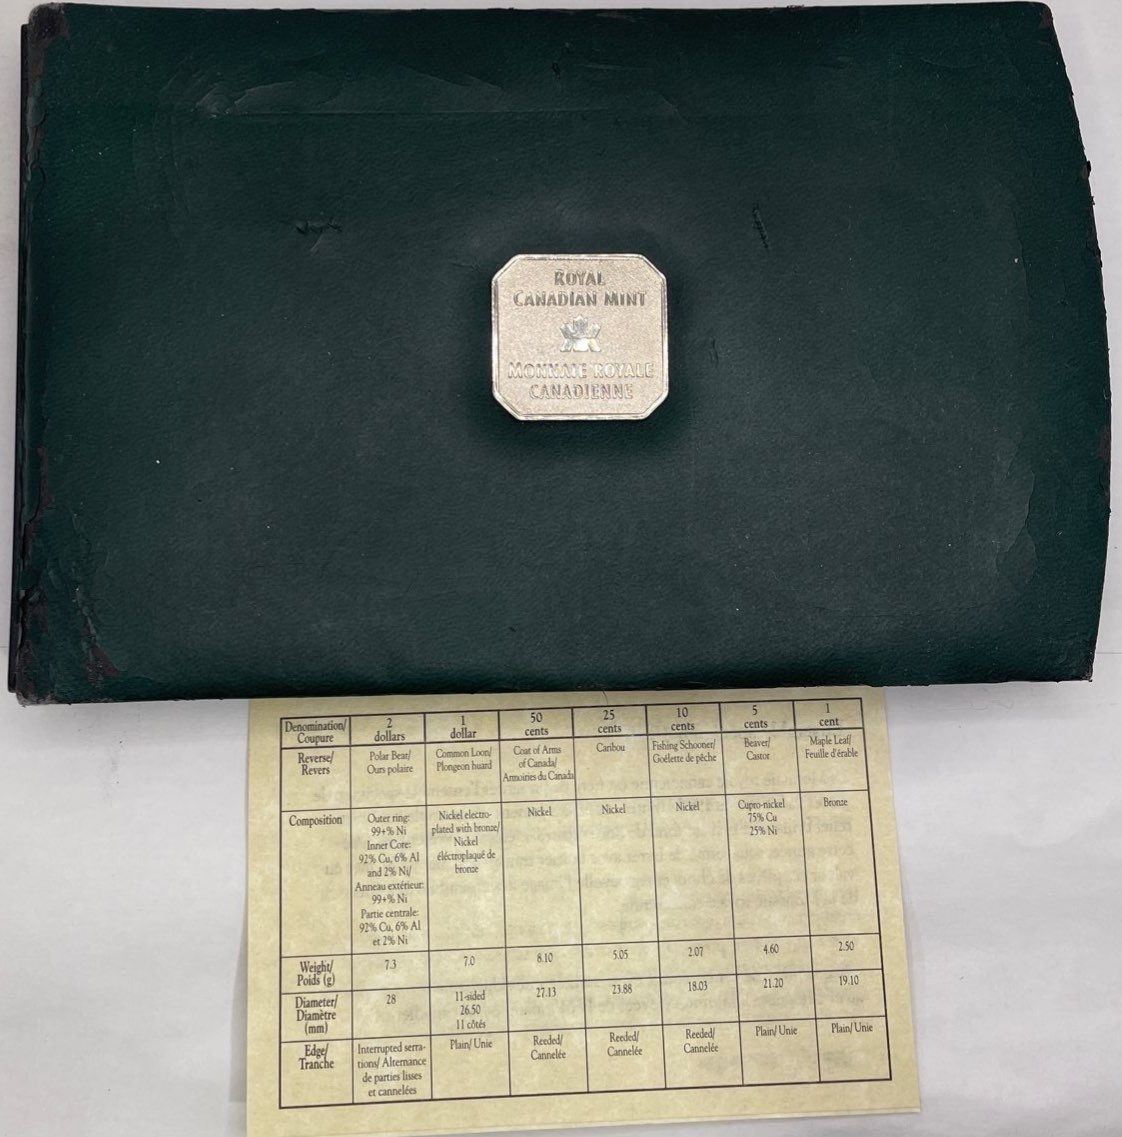 ROYAL
CANADIAN MINT
MONNAIE ROYALE
CANADIENNE
Denomination/ Coupure 2 dollars 1 dollar 50 cents 25 cents 10 cents 5 cents 1 cent
Reverse/ Revers Polar Bear/ Ours polaire Common Loon/ Plongeon huard Coat of Arms of Canada/ Armoiries du Canada Caribou Fishing Schooner/ Goélette de pêche Beaver/ Castor Maple Leaf/ Feuille d'érable
Composition Outer ring: 99+% Ni Inner Core: 92% Cu, 6% Al and 2% Ni/ Anneau extérieur: 99+% Ni Partie centrale: 92% Cu, 6% Al et 2% Ni Nickel electro-plated with bronze/ Nickel éléctroplaqué de bronze Nickel Nickel Nickel Cupro-nickel 75% Cu 25% Ni Bronze
Weight/ Poids (g) 7.3 7.0 8.10 5.05 2.07 4.60 2.50
Diameter/ Diamètre (mm) 28 11-sided 26.50 11 côtés 27.13 23.88 18.03 21.20 19.10
Edge/ Tranche Interrupted serra-tions/ Alternance de parties lisses et cannelées Plain/ Unie Reeded/ Cannelée Reeded/ Cannelée Reeded/ Cannelée Plain/ Unie Plain/ Unie